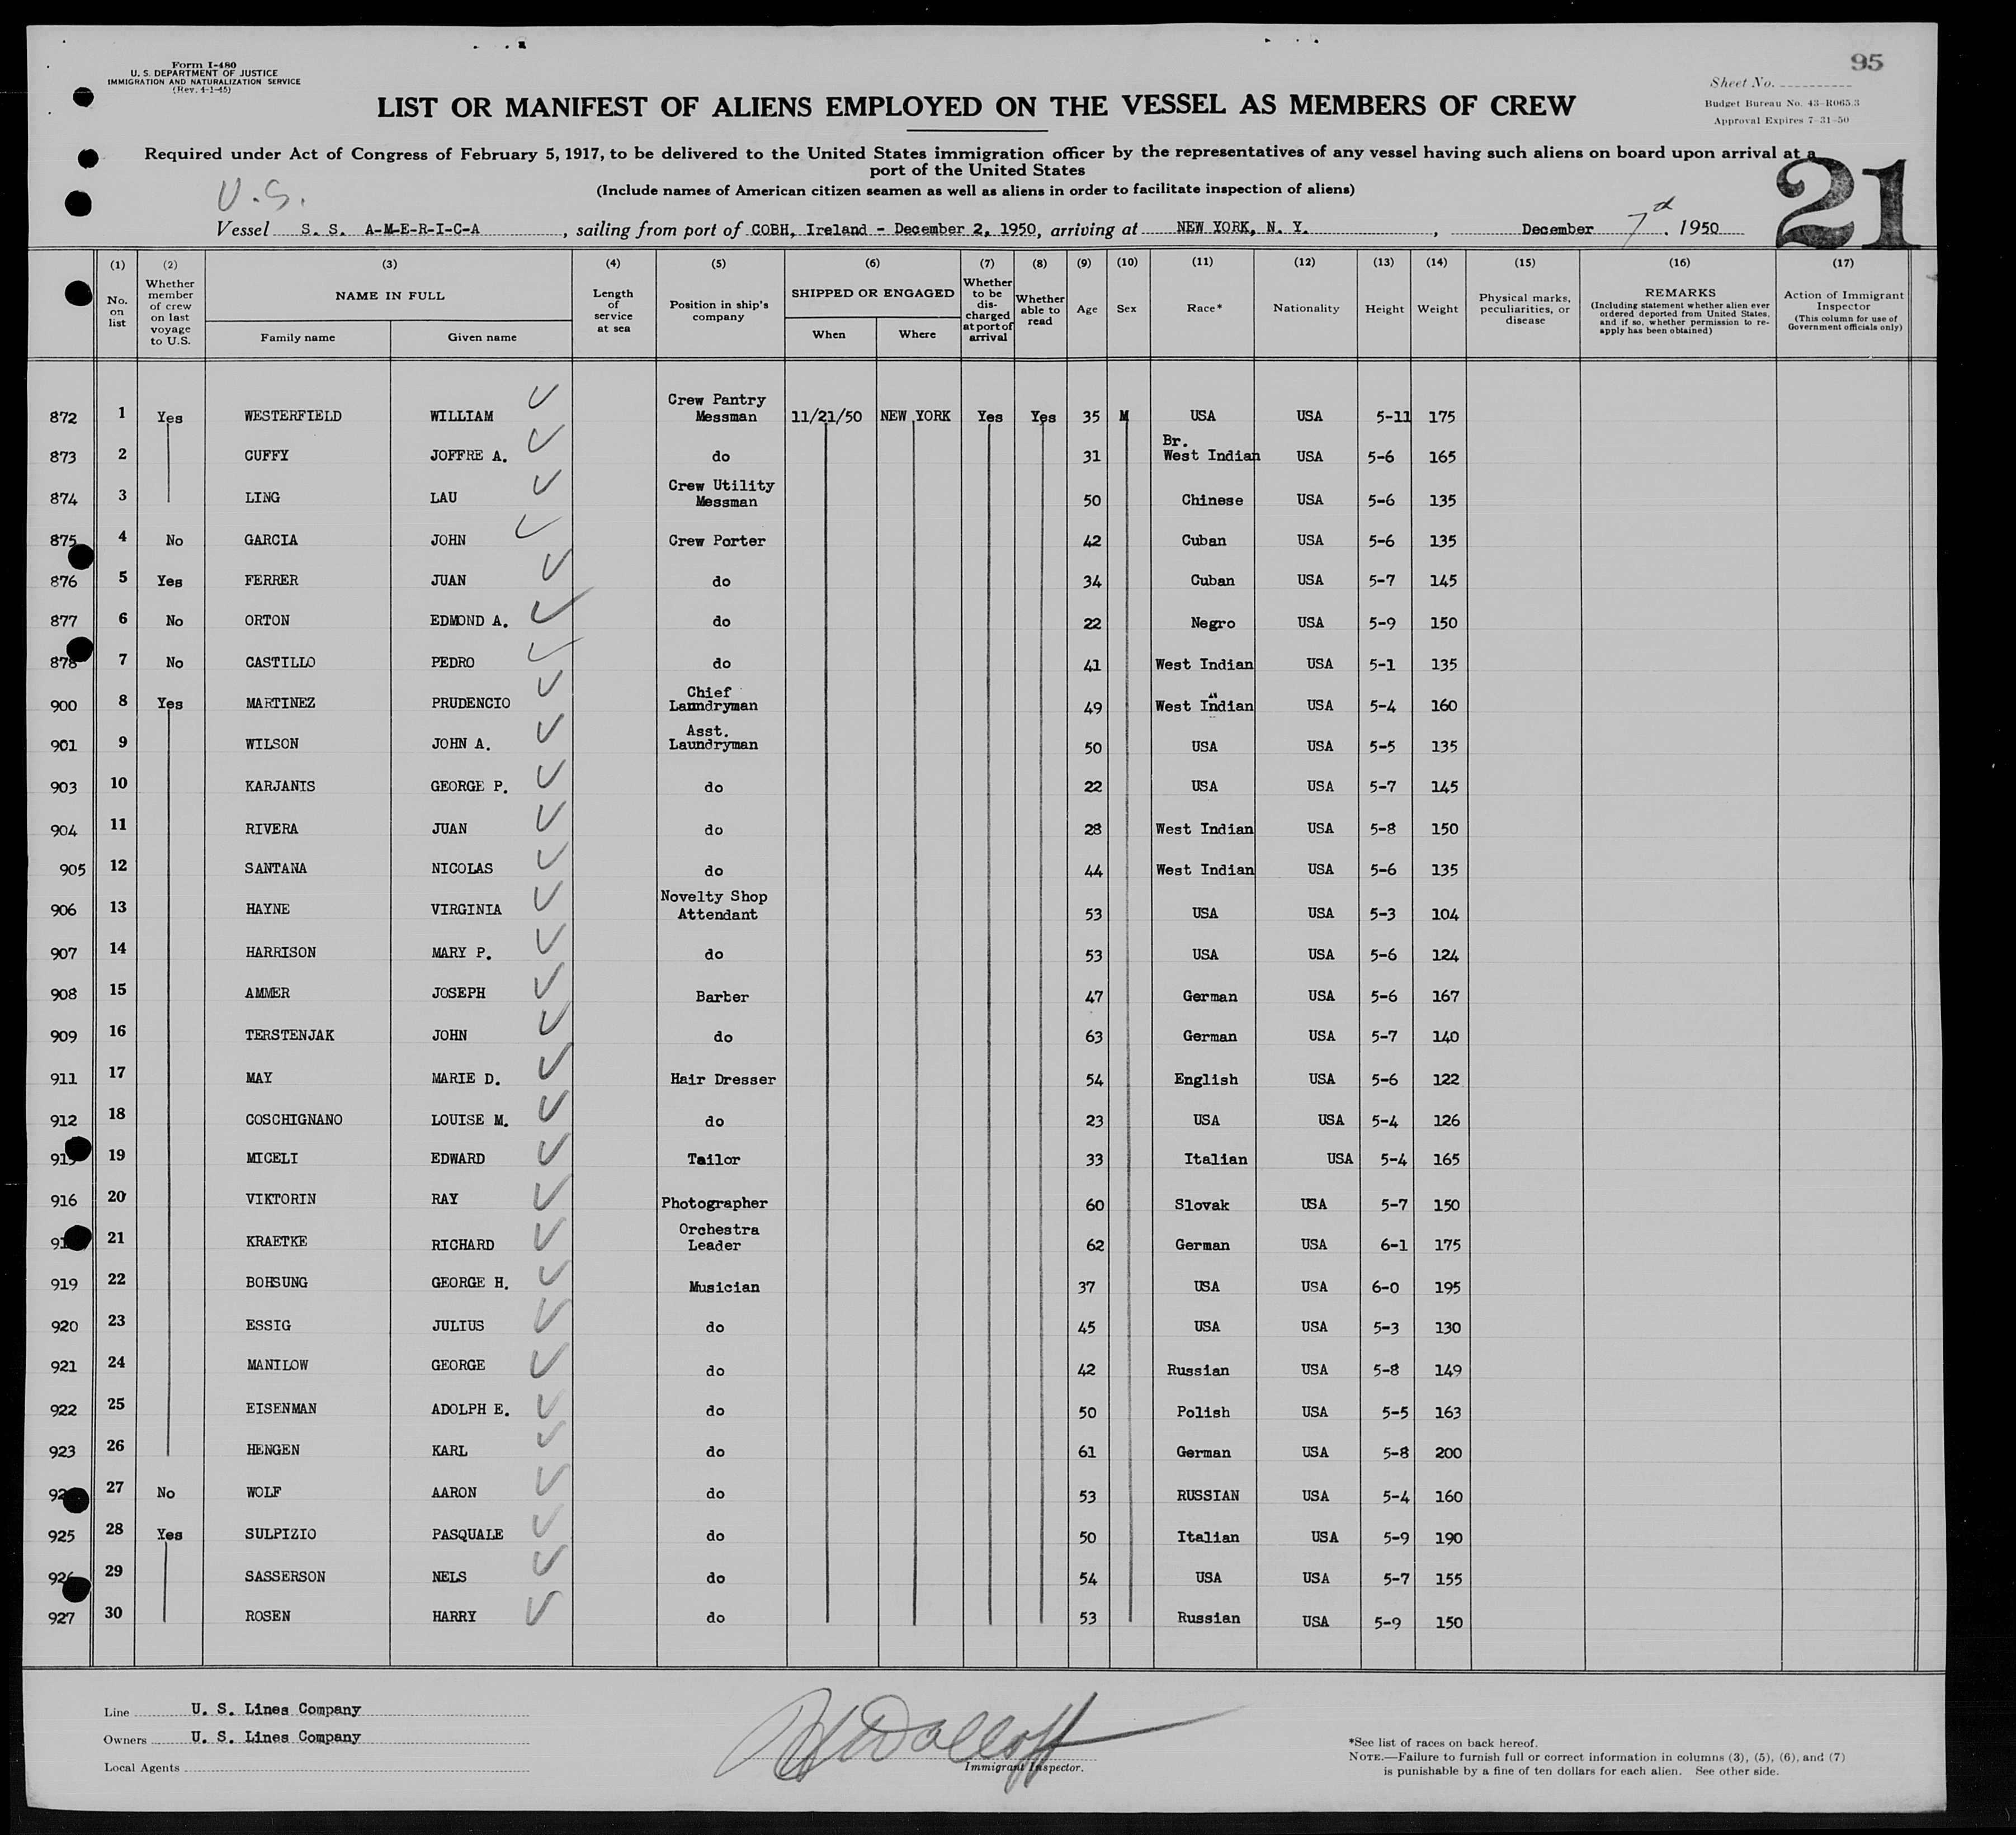 95
Form I-480
U. S. DEPARTMENT OF JUSTICE
IMMIGRATION AND NATURALIZATION SERVICE
(Rev. 4-1-45)
Sheet No.
Budget Bureau No. 43-R065.3
Approval Expires 7-31-50
LIST OR MANIFEST OF ALIENS EMPLOYED ON THE VESSEL AS MEMBERS OF CREW
Required under Act of Congress of February 5, 1917, to be delivered to the United States immigration officer by the representatives of any vessel having such aliens on board upon arrival at a
port of the United States
(Include names of American citizen seamen as well as aliens in order to facilitate inspection of aliens)
21
U.S.
Vessel S. S. A-M-E-R-I-C-A , sailing from port of COBH, Ireland - December 2, 1950, arriving at NEW YORK, N. Y. , December 7th . 1950
(1) (2) (3) (4) (5) (6) (7) (8) (9) (10) (11) (12) (13) (14) (15) (16) (17)
No. on list
Whether member of crew on last voyage to U.S.
NAME IN FULL
Family name
Given name
Length of service at sea
Position in ship's company
SHIPPED OR ENGAGED
When
Where
Whether to be discharged at port of arrival
Whether able to read
Age
Sex
Race*
Nationality
Height
Weight
Physical marks, peculiarities, or disease
REMARKS
(Including statement whether alien ever ordered deported from United States, and if so, whether permission to re-apply has been obtained)
Action of Immigrant Inspector
(This column for use of Government officials only)
872 1 Yes WESTERFIELD WILLIAM Crew Pantry Messman 11/21/50 NEW YORK Yes Yes 35 M USA USA 5-11 175
873 2 CUFFY JOFFRE A. do 31 Br. West Indian USA 5-6 165
874 3 LING LAU Crew Utility Messman 50 Chinese USA 5-6 135
875 4 No GARCIA JOHN Crew Porter 42 Cuban USA 5-6 135
876 5 Yes FERRER JUAN do 34 Cuban USA 5-7 145
877 6 No ORTON EDMOND A. do 22 Negro USA 5-9 150
878 7 No CASTILLO PEDRO do 41 West Indian USA 5-1 135
900 8 Yes MARTINEZ PRUDENCIO Chief Laundryman 49 West Indian USA 5-4 160
901 9 WILSON JOHN A. Asst. Laundryman 50 USA USA 5-5 135
903 10 KARJANIS GEORGE P. do 22 USA USA 5-7 145
904 11 RIVERA JUAN do 28 West Indian USA 5-8 150
905 12 SANTANA NICOLAS do 44 West Indian USA 5-6 135
906 13 HAYNE VIRGINIA Novelty Shop Attendant 53 USA USA 5-3 104
907 14 HARRISON MARY P. do 53 USA USA 5-6 124
908 15 AMMER JOSEPH Barber 47 German USA 5-6 167
909 16 TERSTENJAK JOHN do 63 German USA 5-7 140
911 17 MAY MARIE D. Hair Dresser 54 English USA 5-6 122
912 18 COSCHIGNANO LOUISE M. do 23 USA USA 5-4 126
19 MICELI EDWARD Tailor 33 Italian USA 5-4 165
916 20 VIKTORIN RAY Photographer 60 Slovak USA 5-7 150
21 KRAETKE RICHARD Orchestra Leader 62 German USA 6-1 175
919 22 BOHSUNG GEORGE H. Musician 37 USA USA 6-0 195
920 23 ESSIG JULIUS do 45 USA USA 5-3 130
921 24 MANILOW GEORGE do 42 Russian USA 5-8 149
922 25 EISENMAN ADOLPH E. do 50 Polish USA 5-5 163
923 26 HENGEN KARL do 61 German USA 5-8 200
27 No WOLF AARON do 53 RUSSIAN USA 5-4 160
925 28 Yes SULPIZIO PASQUALE do 50 Italian USA 5-9 190
926 29 SASSERSON NELS do 54 USA USA 5-7 155
927 30 ROSEN HARRY do 53 Russian USA 5-9 150
Line U. S. Lines Company
Owners U. S. Lines Company
Local Agents
Immigrant Inspector.
*See list of races on back hereof.
NOTE.—Failure to furnish full or correct information in columns (3), (5), (6), and (7)
is punishable by a fine of ten dollars for each alien. See other side.